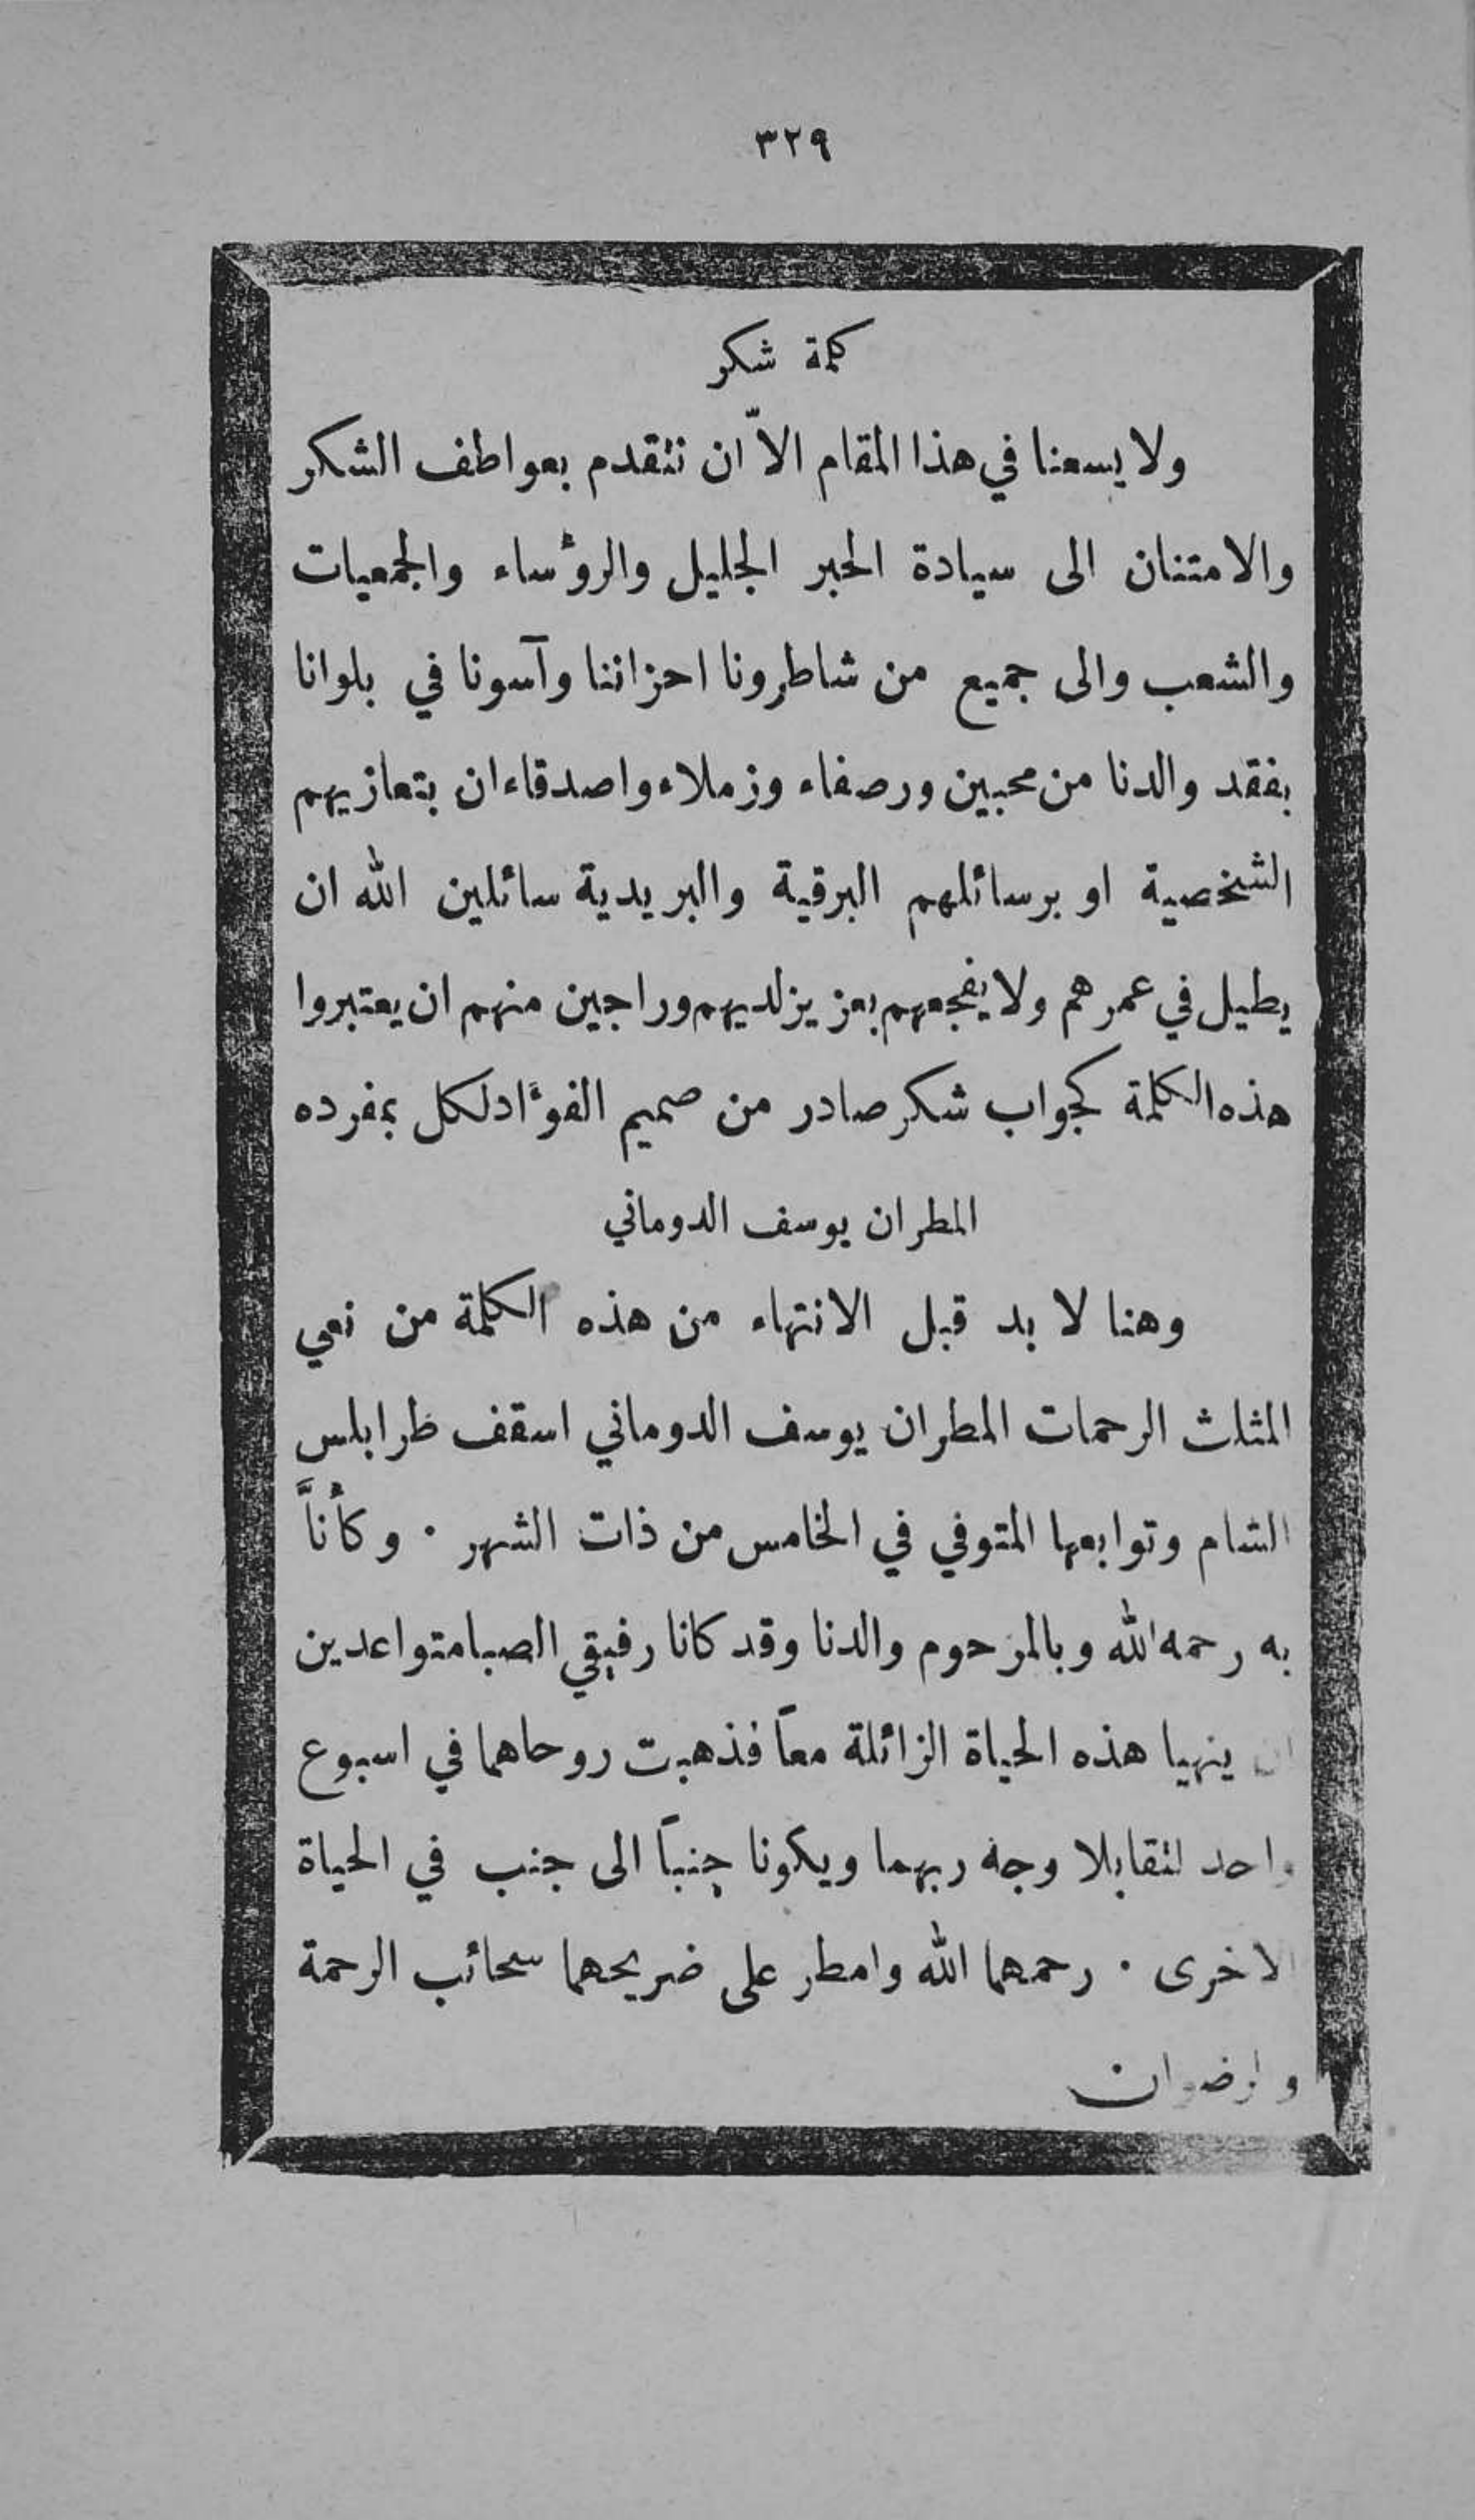 ٣٢٩
كلمة شكر
ولا يسعنا في هذا المقام الاّ ان نتقدم بعواطف الشكر
والامتنان الى سيادة الحبر الجليل والرؤساء والجمعيات
والشعب والى جميع من شاطرونا احزاننا وآسونا في بلوانا
بفقد والدنا من محبين ورصفاء وزملاء واصدقاء ان بتعازيهم
الشخصية او برسائلهم البرقية والبريدية سائلين الله ان
يطيل في عمرهم ولا يفجعهم بعزيز لديهم وراجين منهم ان يعتبروا
هذه الكلمة كجواب شكر صادر من صميم الفؤاد لكل بمفرده
المطران يوسف الدوماني
وهنا لا بد قبل الانتهاء من هذه الكلمة من نعي
المثلث الرحمات المطران يوسف الدوماني اسقف طرابلس
الشام وتوابعها المتوفي في الخامس من ذات الشهر ٠ وكأناَّ
به رحمه الله وبالمرحوم والدنا وقد كانا رفيقي الصبا متواعدين
ان ينهيا هذه الحياة الزائلة معاً فذهبت روحاهما في اسبوع
واحد لتقابلا وجه ربهما ويكونا جنباً الى جنب في الحياة
الاخرى ٠ رحمهما الله وامطر على ضريحهما سحائب الرحمة
والرضوان